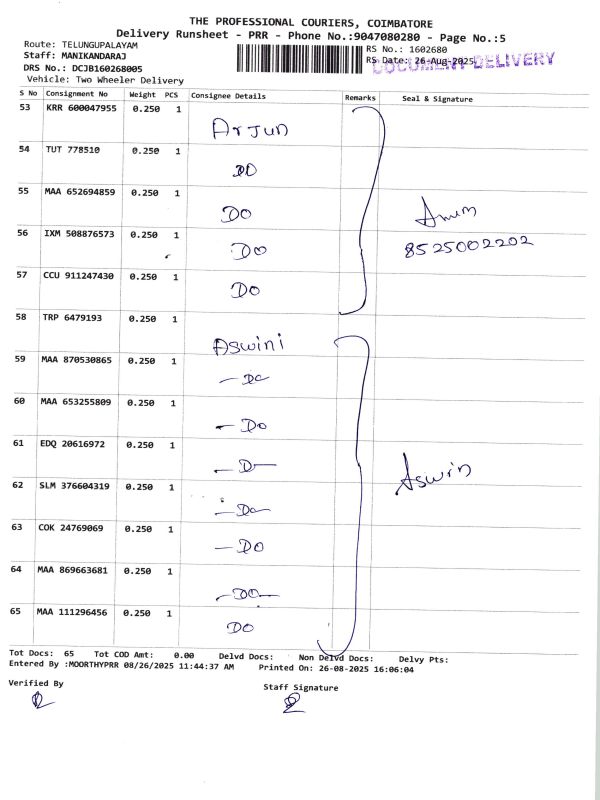 THE PROFESSIONAL COURIERS, COIMBATORE
Delivery Runsheet - PRR - Phone No.:9047080280 - Page No.:5
Route: TELUNGUPALAYAM
RS No.: 1602680
Staff: MANIKANDARAJ
RS Date: 26-Aug-2025
DOCUMENT DELIVERY
DRS No.: DCJB160268005
Vehicle: Two Wheeler Delivery
S No Consignment No Weight PCS Consignee Details Remarks Seal & Signature
53 KRR 600047955 0.250 1 Arjun
54 TUT 778510 0.250 1 DO
55 MAA 652694859 0.250 1 DO
56 IXM 508876573 0.250 1 DO 8525002202
57 CCU 911247430 0.250 1 DO
58 TRP 6479193 0.250 1 Aswini
59 MAA 870530865 0.250 1 — Do
60 MAA 653255809 0.250 1 — Do
61 EDQ 20616972 0.250 1 — D—
62 SLM 376604319 0.250 1 — Do— Aswin
63 COK 24769069 0.250 1 — DO
64 MAA 869663681 0.250 1 —DO—
65 MAA 111296456 0.250 1 DO
Tot Docs: 65 Tot COD Amt: 0.00 Delvd Docs: Non Delvd Docs: Delvy Pts:
Entered By :MOORTHYPRR 08/26/2025 11:44:37 AM Printed On: 26-08-2025 16:06:04
Verified By
Staff Signature